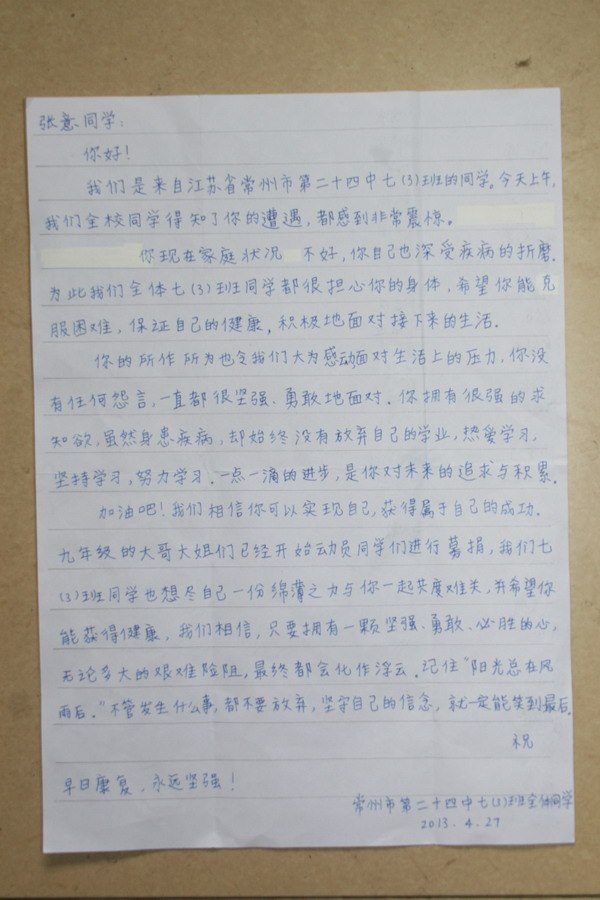 张意同学：
你好！
我们是来自江苏省常州市第二十四中七(3)班的同学。今天上午，
我们全校同学得知了你的遭遇，都感到非常震惊。
你现在家庭状况 不好，你自己也深受疾病的折磨.
为此我们全体七(3)班同学都很担心你的身体，希望你能克
服困难，保证自己的健康，积极地面对接下来的生活.
你的所作所为也令我们大为感动面对生活上的压力，你没
有任何怨言，一直都很坚强、勇敢地面对. 你拥有很强的求
知欲，虽然身患疾病，却始终没有放弃自己的学业，热爱学习，
坚持学习，努力学习. 一点一滴的进步，是你对未来的追求与积累.
加油吧！我们相信你可以实现自己，获得属于自己的成功.
九年级的大哥大姐们已经开始动员同学们进行募捐，我们七
(3)班同学也想尽自己一份绵薄之力与你一起共度难关，并希望你
能获得健康，我们相信，只要拥有一颗坚强、勇敢、必胜的心，
无论多大的艰难险阻，最终都会化作浮云. 记住“阳光总在风
雨后.”不管发生什么事，都不要放弃，坚守自己的信念，就一定能笑到最后.
祝
早日康复，永远坚强！
常州市第二十四中七(3)班全体同学
2013.4.27